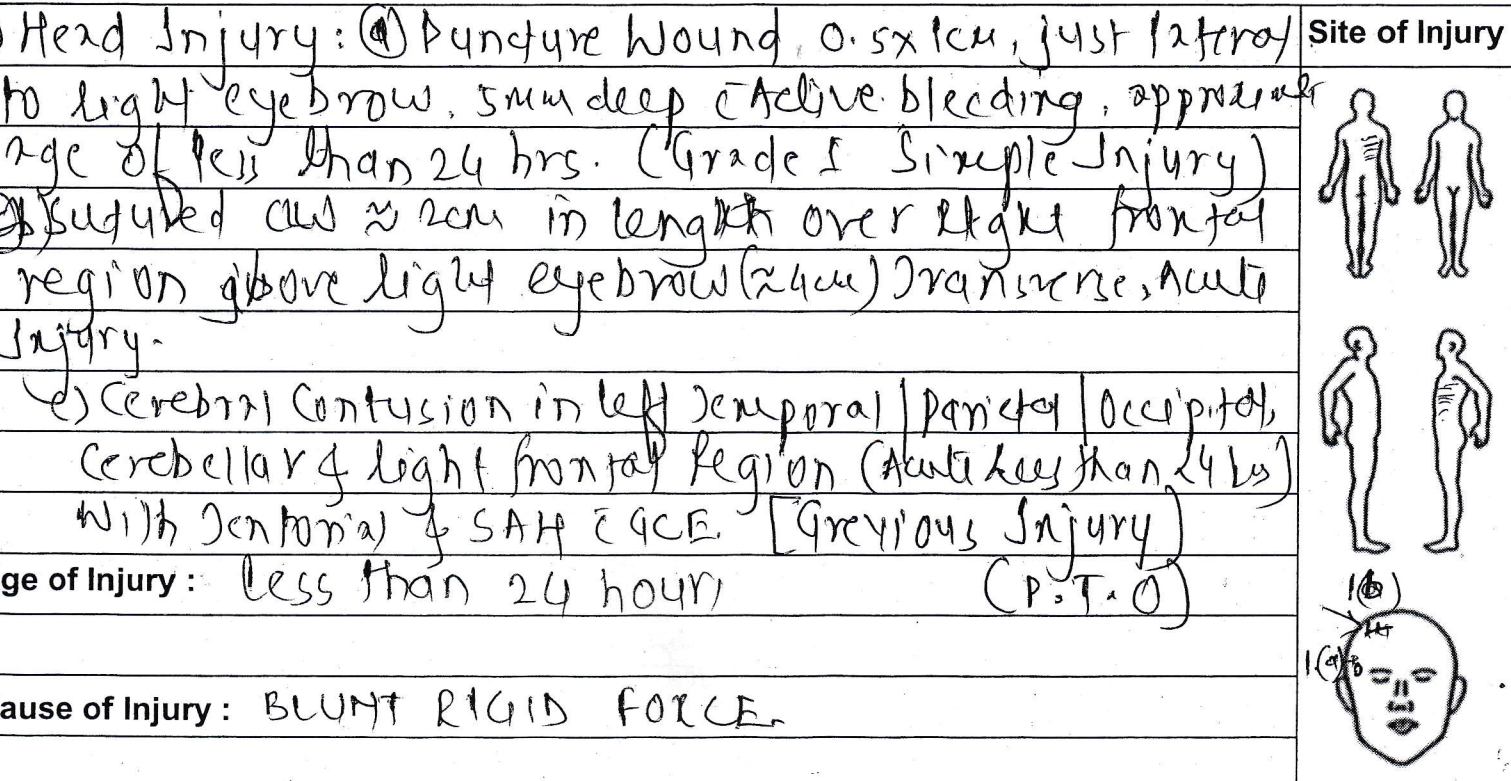 ) Head Injury: (a) Puncture Wound, 0.5x1cm, just lateral
to right eyebrow, 5mm deep c̄ Active bleeding, approximate
age of less than 24 hrs. (Grade I Simple Injury)
b) sutured CLW ≈ 2cm in length over Right frontal
region above right eyebrow (≈4cm) Transverse, Acute
Injury.
c) Cerebral Contusion in left Temporal | Parietal | Occipital,
Cerebellar & Right frontal Region (Acute Less than 24 hrs)
With Tentorial & SAH c̄ GCE. [Grevious Injury]
ge of Injury : Less than 24 hours
(P.T.O)
ause of Injury : BLUNT RIGID FORCE.
Site of Injury
1(b)
1(a)